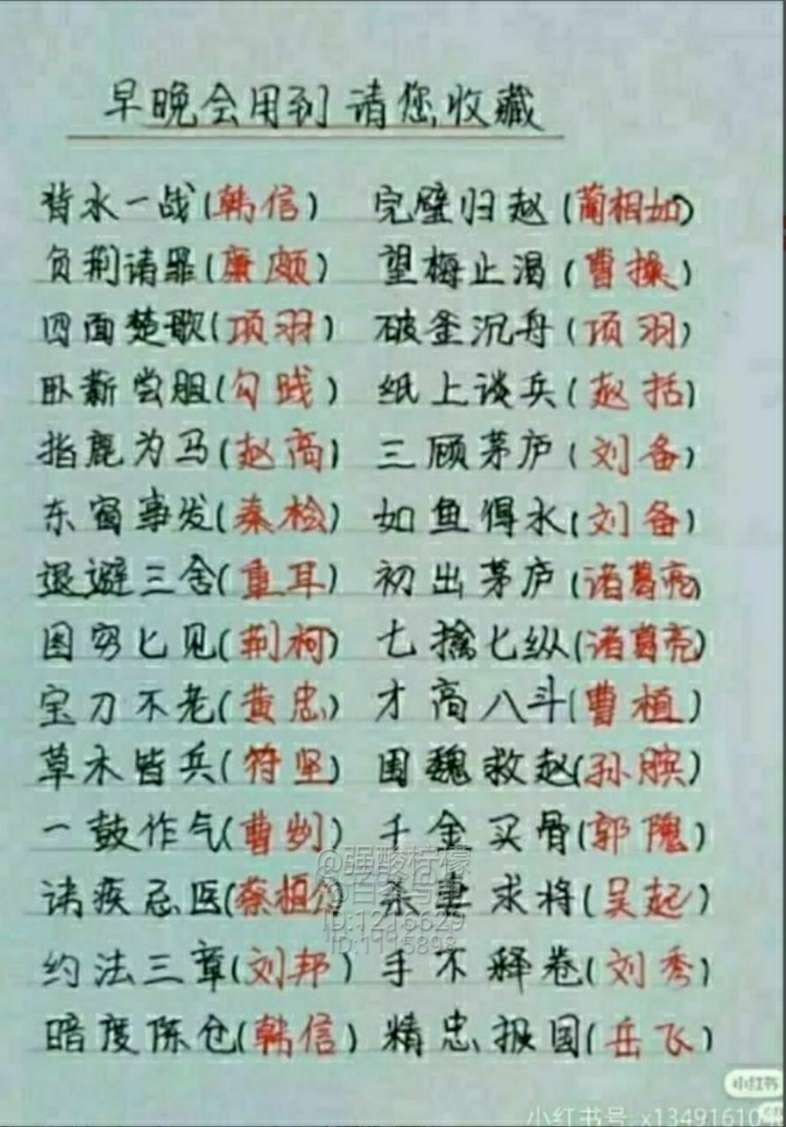 早晚会用到 请您收藏
背水一战(韩信) 完璧归赵(蔺相如)
负荆请罪(廉颇) 望梅止渴(曹操)
四面楚歌(项羽) 破釜沉舟(项羽)
卧薪尝胆(勾践) 纸上谈兵(赵括)
指鹿为马(赵高) 三顾茅庐(刘备)
东窗事发(秦桧) 如鱼得水(刘备)
退避三舍(重耳) 初出茅庐(诸葛亮)
图穷匕见(荆柯) 七擒七纵(诸葛亮)
宝刀不老(黄忠) 才高八斗(曹植)
草木皆兵(符坚) 围魏救赵(孙膑)
一鼓作气(曹刿) 千金买骨(郭隗)
讳疾忌医(蔡桓公) 杀妻求将(吴起)
约法三章(刘邦) 手不释卷(刘秀)
暗度陈仓(韩信) 精忠报国(岳飞)
@强酸柠檬
ID:1216629
ID:1115898
小红书
小红书号 x13491610